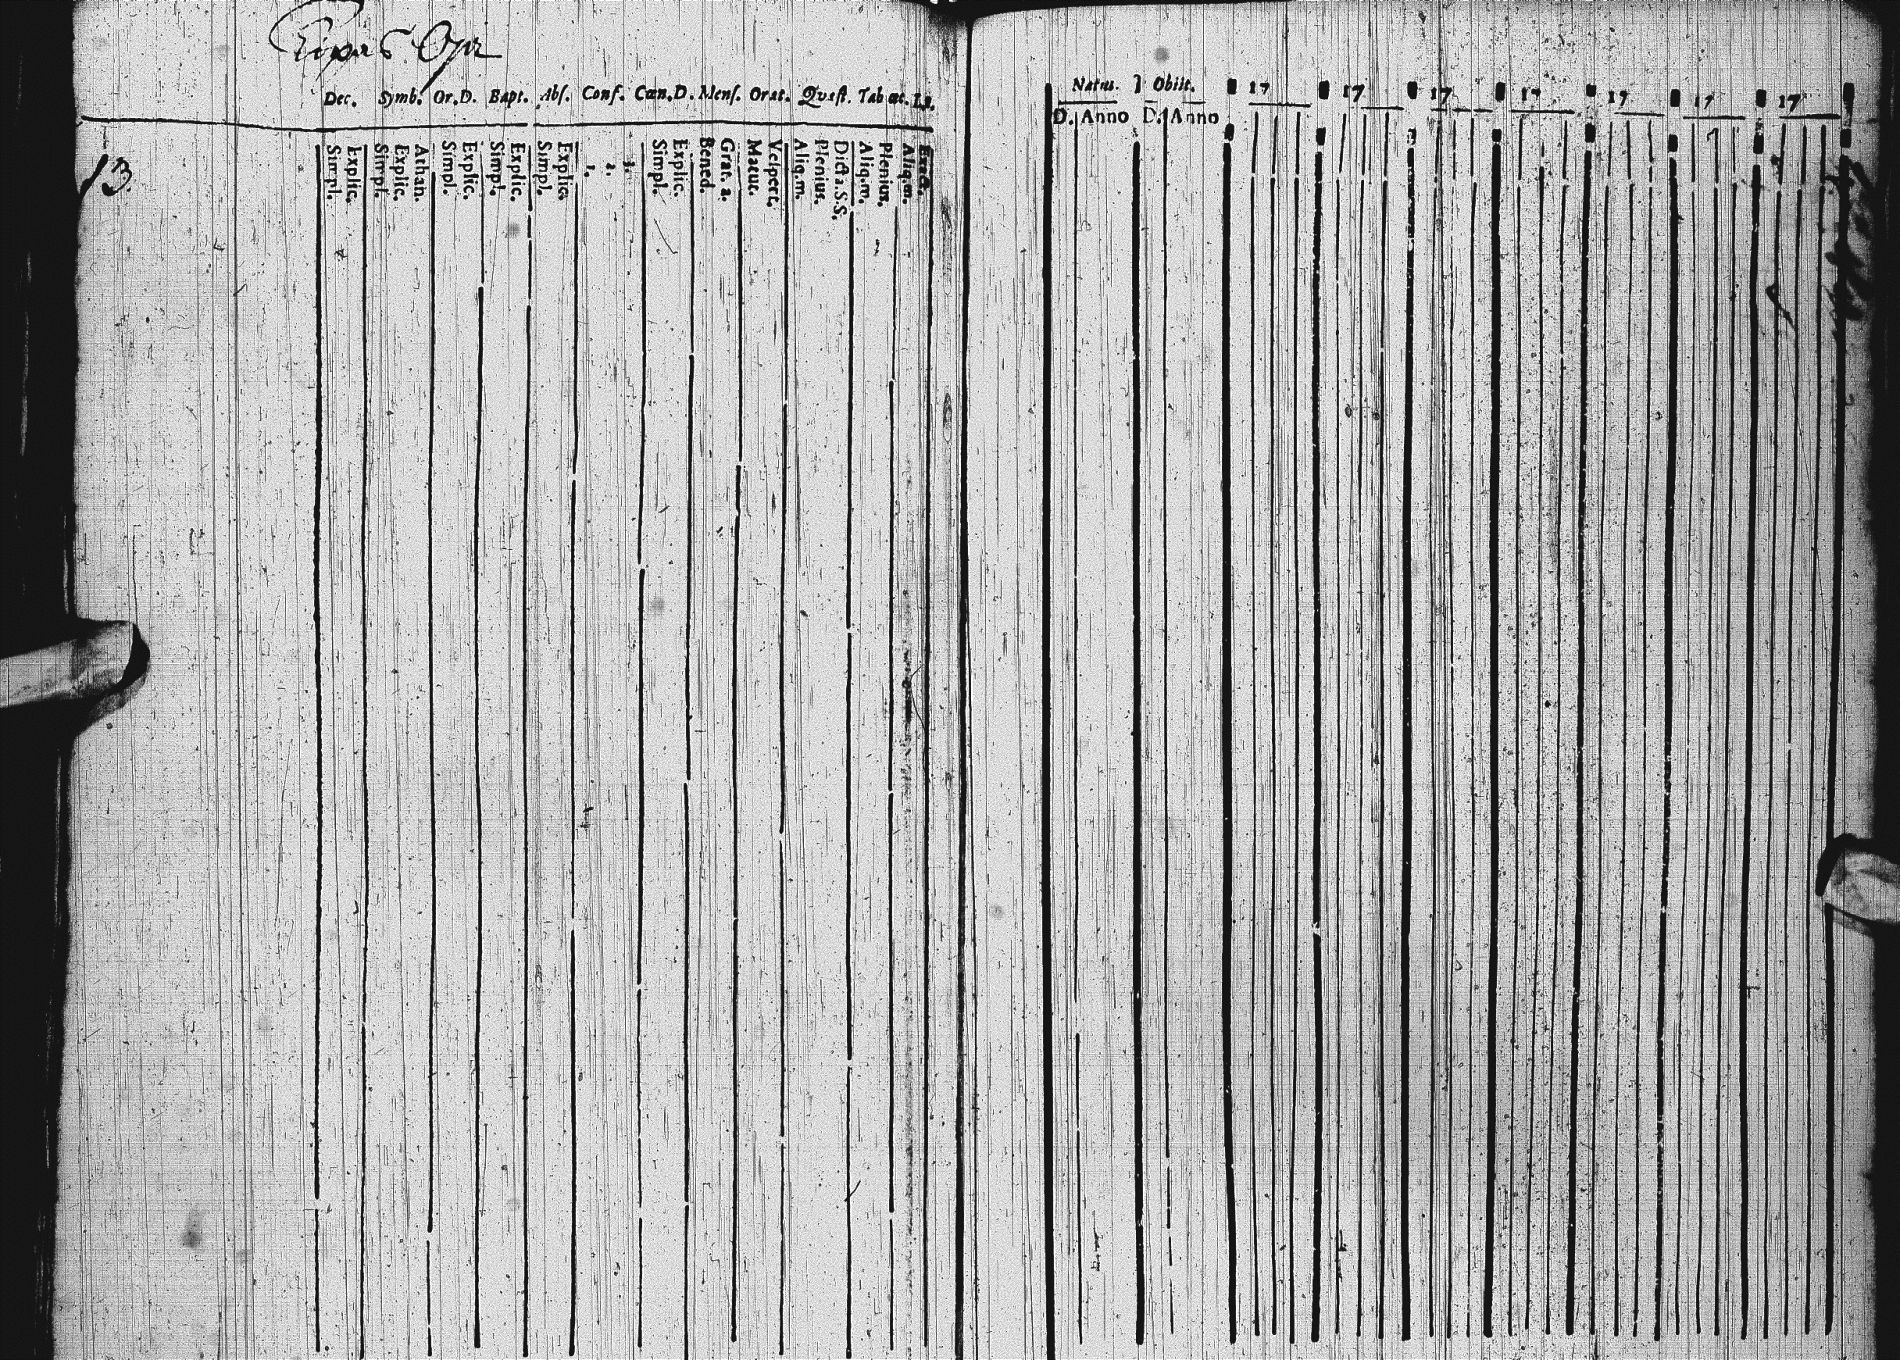 Dec. Symb. Or.D. Bapt. Abs. Conf. Cœn.D. Mens. Orat. Quæst. Tab œc. L.s.
13.
Simpl. Explic. Simpl. Explic. Athan. Simpl. Explic. Simpl. Explic. Simpl. Explic. 1. 2. 3. Simpl. Explic. Bened. Grat. a. Matut. Vespert. Aliq.m. Plenius. Dicta.S.S. Aliq.m. Plenius. Aliq.m. Exact.
Natus. Obiit. 17 17 17 17 17 17 17
D. Anno D. Anno